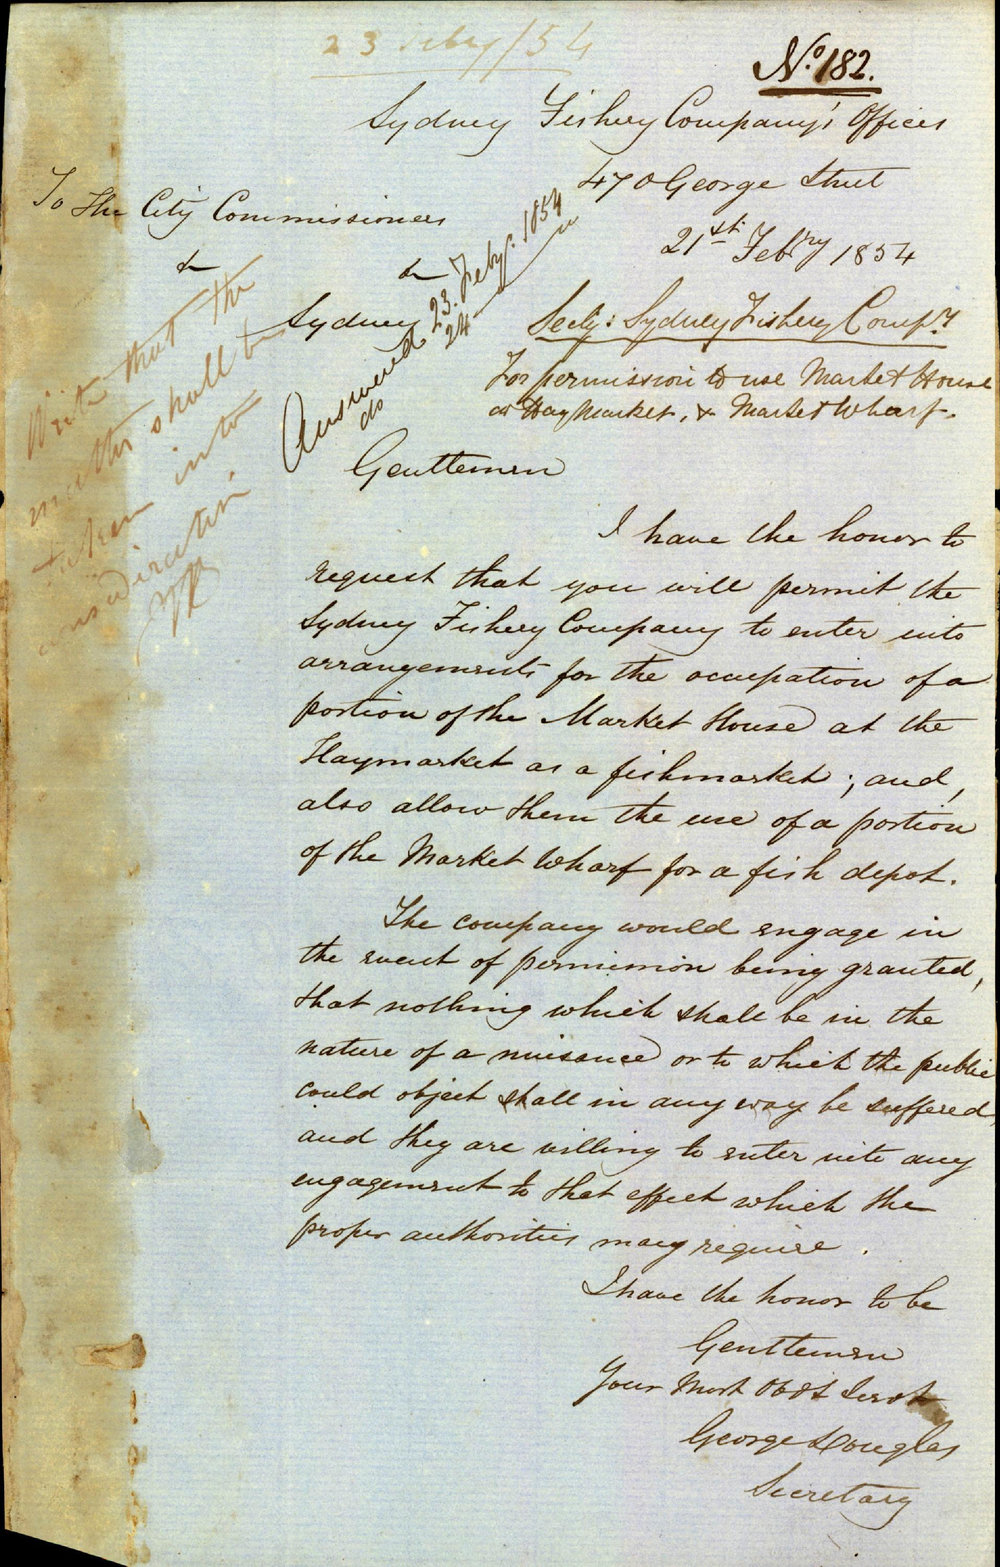 23 Feby/54
No. 182.
Sydney Fishery Company's Offices
470 George Street
21st Febry 1854
To The City Commissioners
&c &c
Sydney
Answered 23. Feby. 1854
do 24
Secty: Sydney Fishery Compy
For permission to use Market House
as Haymarket, & Market Wharf.
Write that the
matter shall be
taken into
consideration
Gentlemen
I have the honor to
request that you will permit the
Sydney Fishery Company to enter into
arrangements for the occupation of a
portion of the Market House at the
Haymarket as a fishmarket; and,
also allow them the use of a portion
of the Market Wharf for a fish depot.
The company would engage in
the event of permission being granted,
that nothing which shall be in the
nature of a nuisance or to which the public
could object shall in any way be suffered,
and they are willing to enter into any
engagement to that effect which the
proper authorities may require.
I have the honor to be
Gentlemen
Your Most Obdt Servt
George Douglas
Secretary